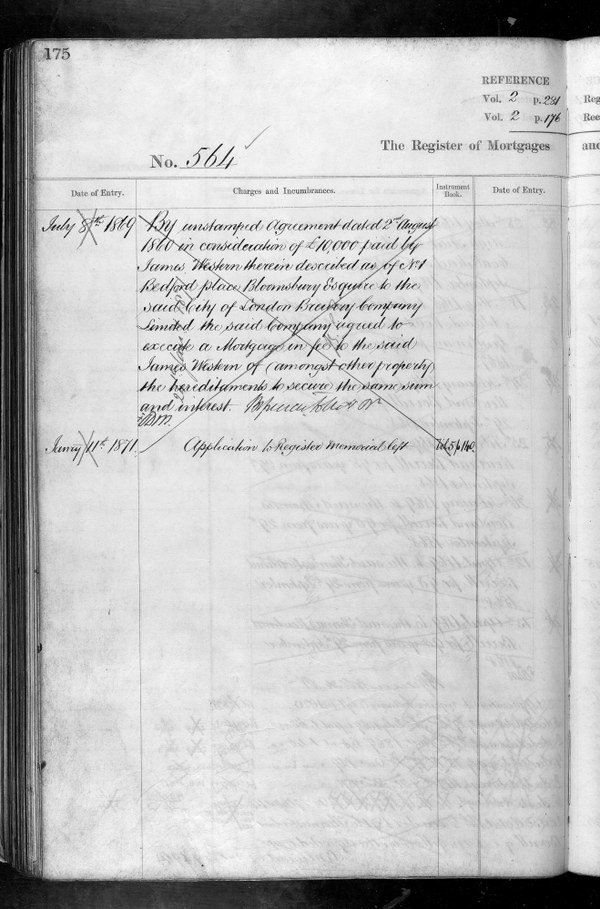 175
REFERENCE
Vol. 2 p. 221
Vol. 2 p. 176
Reg
Rec
The Register of Mortgages
and
No. 564
Date of Entry.
Charges and Incumbrances.
Instrument Book.
Date of Entry.
July 8th 1869
By unstamped Agreement dated 2nd August
1860 in consideration of £10,000 paid by
James Western therein described as of No 1
Bedford place Bloomsbury Esquire to the
said City of London Brewery Company
Limited the said Company agreed to
execute a Mortgage in fee to the said
James Western of (amongst other property)
the hereditaments to secure the same sum
and interest.
Janry 11th 1871
Application to Register Memorial left
Vol. 5 p 140